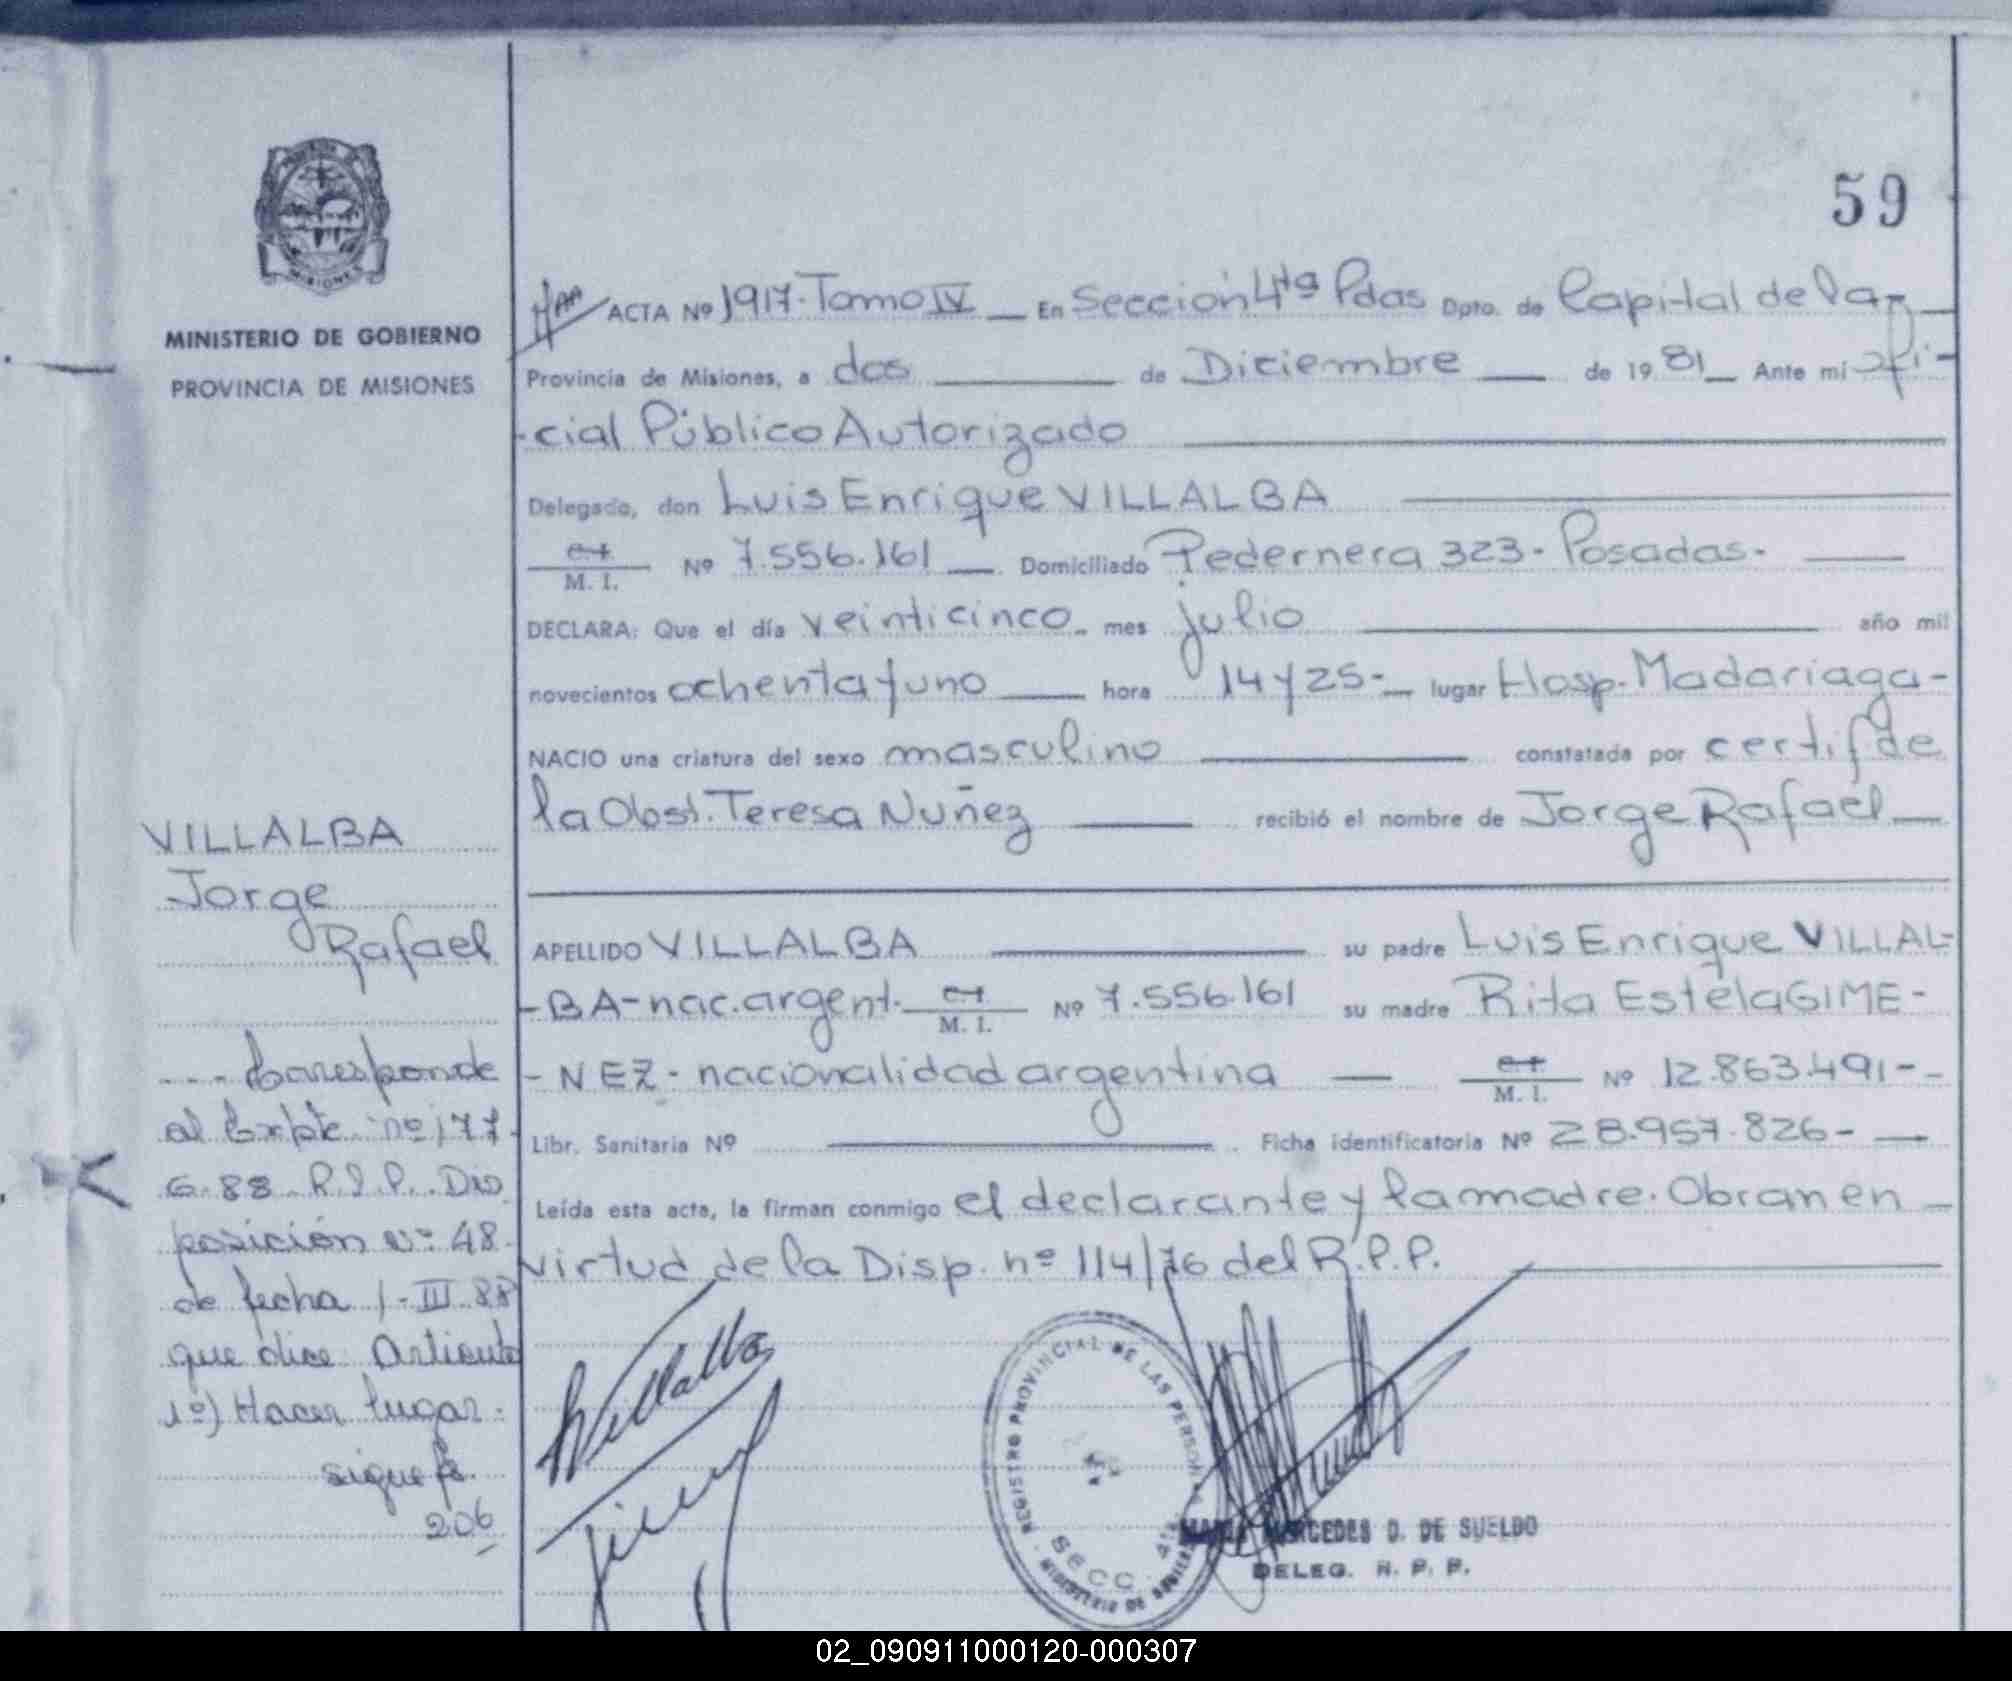 59
MINISTERIO DE GOBIERNO
PROVINCIA DE MISIONES
ACTA Nº 1917. Tomo IV En Sección 4ta Pdas Dpto. de Capital de la
Provincia de Misiones, a dos de Diciembre de 1981 Ante mi ofi-
-cial Público Autorizado
Delegado, don Luis Enrique VILLALBA
M. I. Nº 7.556.161 Domiciliado Pedernera 323 - Posadas.
DECLARA: Que el día veinticinco mes julio año mil
novecientos ochenta y uno hora 14 y 25- lugar Hosp. Madariaga-
NACIO una criatura del sexo masculino constatada por certif de
la Obst. Teresa Nuñez recibió el nombre de Jorge Rafael
APELLIDO VILLALBA su padre Luis Enrique VILLAL-
-BA-nac. argent. M. I. Nº 7.556.161 su madre Rita Estela GIME-
-NEZ- nacionalidad argentina M. I. Nº 12.863.491--
Libr. Sanitaria Nº Ficha identificatoria Nº 28.957.826-
Leída esta acta, la firman conmigo el declarante y la madre. Obran en
virtud de la Disp. nº 114/76 del R.P.P.
VILLALBA
Jorge
Rafael
--- Corresponde
al Expte nº 177-
G-88 R.P.P. Dis
posición nº 48
de fecha 1-III 88
que dice: Articulo
1º) Hacer lugar.
sigue fº
206
Villalba
REGISTRO PROVINCIAL DE LAS PERSONAS
SECC. 4ta
MINISTERIO DE GOBIERNO
MARIA MERCEDES D. DE SUELDO
DELEG. R. P. P.
02_090911000120-000307